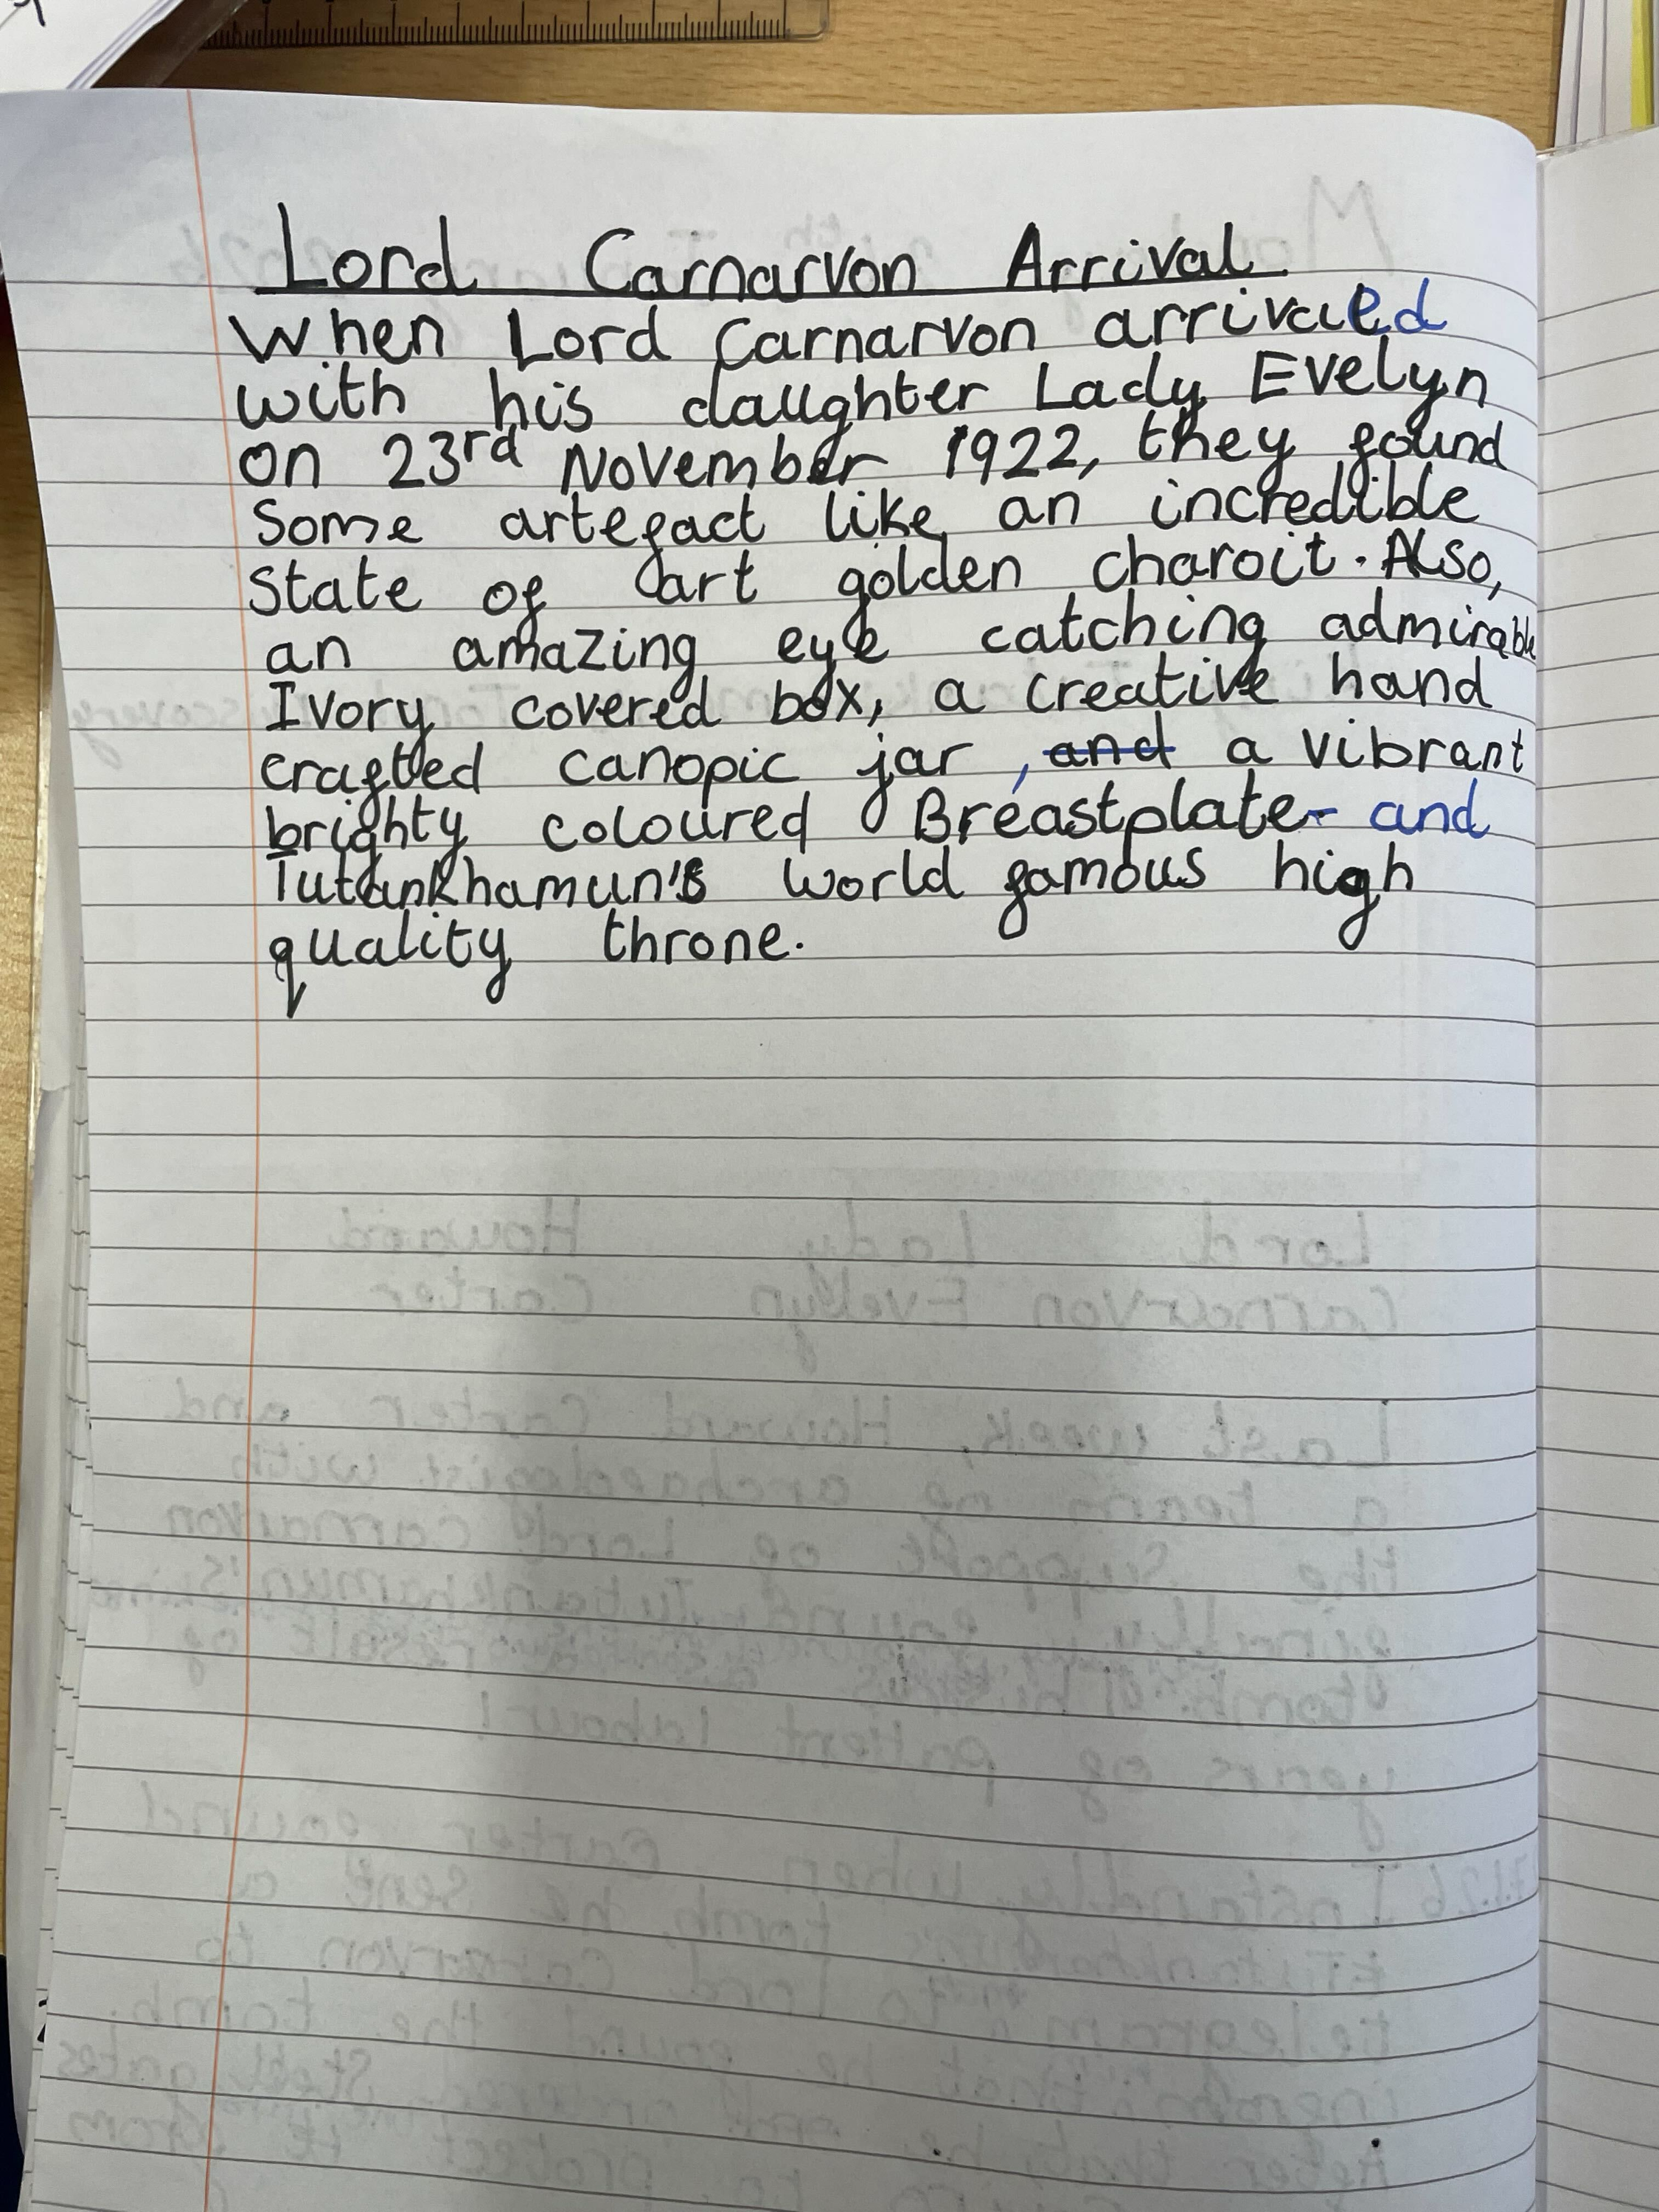 Lord Carnarvon Arrival
When Lord Carnarvon arrivaled
with his daughter Lady Evelyn
on 23rd November 1922, they found
Some artefact like an incredible
State of art golden charoit. Also,
an amazing eye catching admirable
Ivory covered box, a creative hand
crafted canopic jar , and a vibrant
brighty coloured Breastplate and
Tutankhamun's world famous high
quality throne.